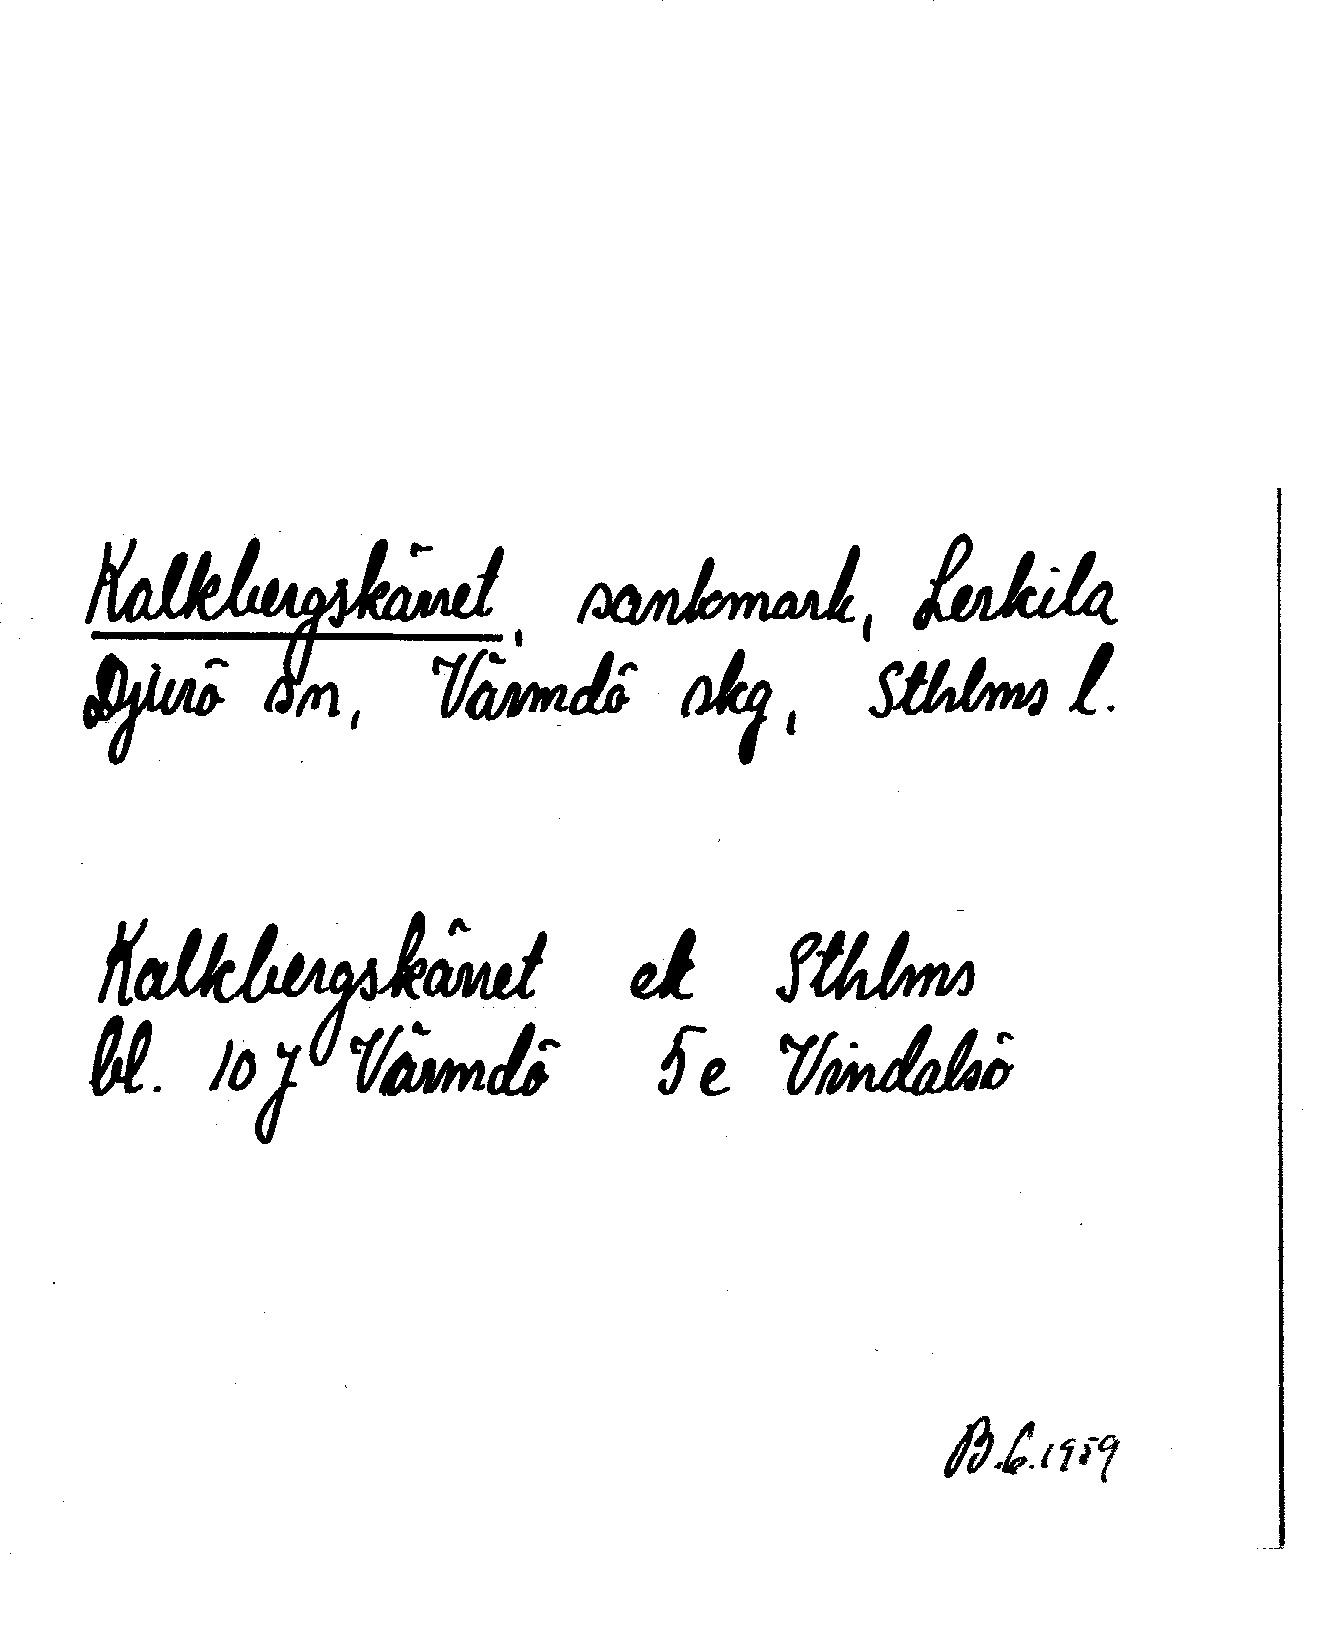 Kalkbergskärret, sankmark, Lerkila
Djurö sn, Värmdö skg, Sthlms l.
Kalkbergskärret ek Sthlms
bl. 10 J Värmdö 5 e Vindalsö
B.G. 1959